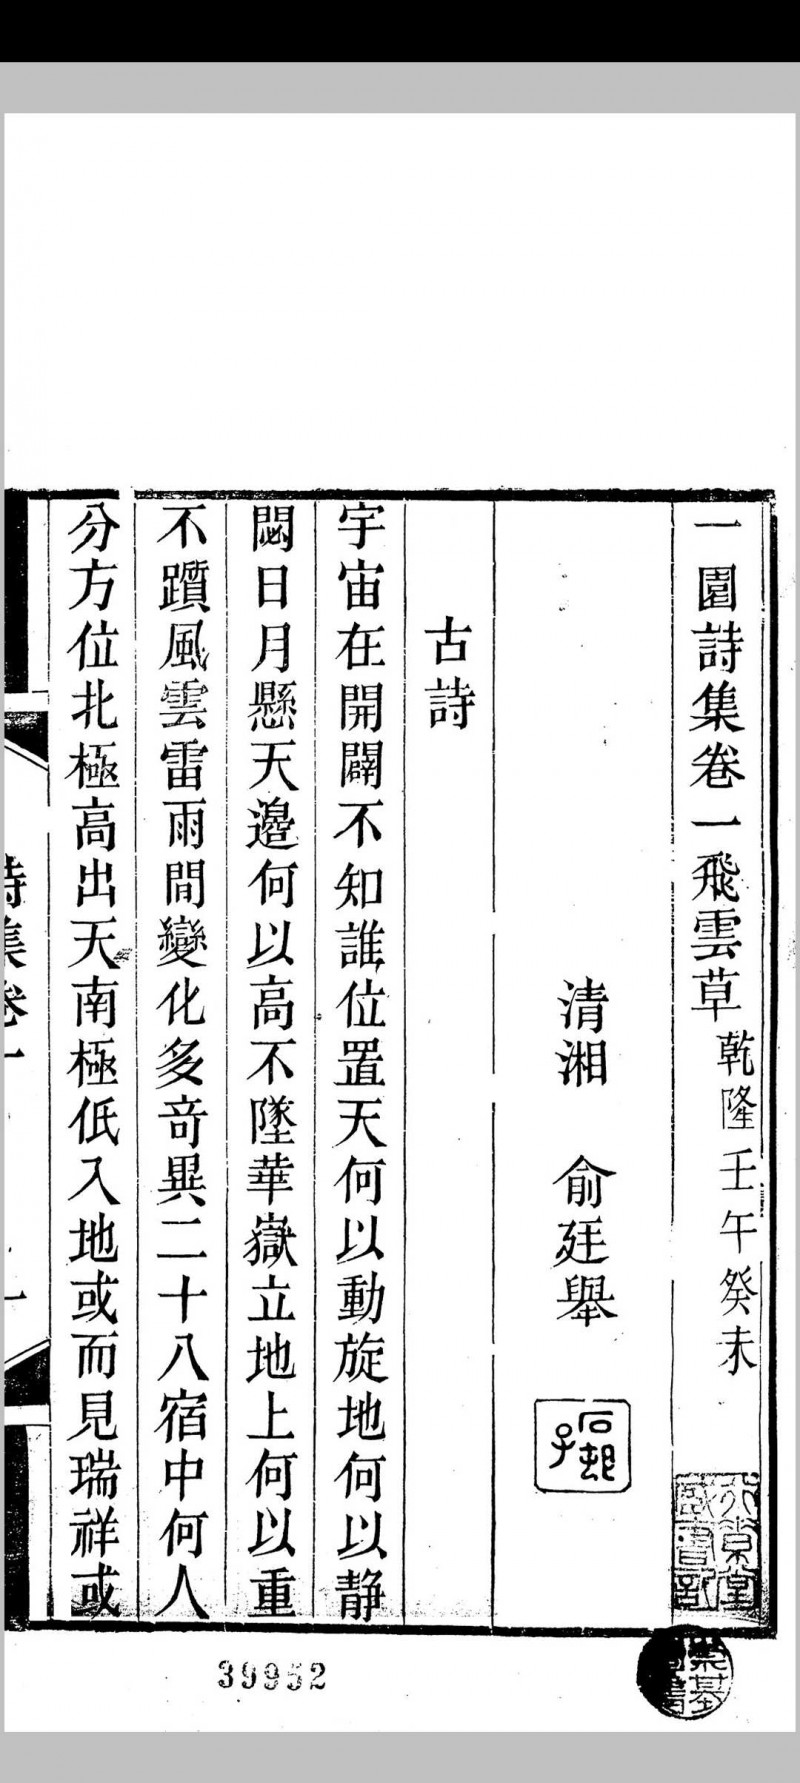 一園詩集卷一飛雲草 乾隆壬午癸未
清湘 俞廷舉
古詩
宇宙在開闢不知誰位置天何以動旋地何以静
閟日月懸天邉何以高不墜華嶽立地上何以重
不躓風雲雷雨間變化多竒異二十八宿中何人
分方位北極高出天南極低入地或而見瑞祥或
詩集卷一
一
39952